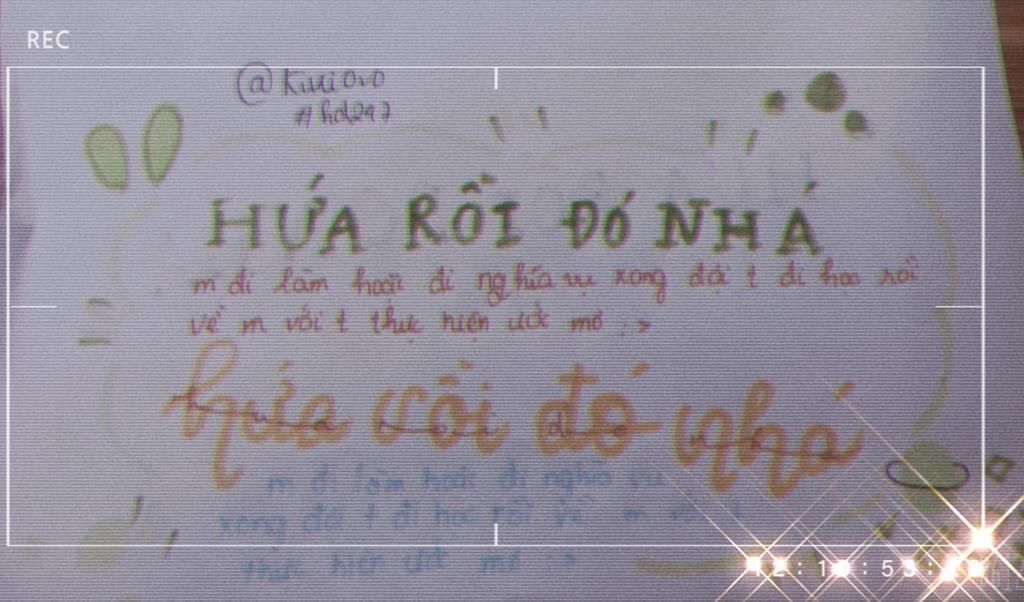 REC
@Kiwi0v0
#hd247
HỨA RỒI ĐÓ NHÁ
m đi làm hoặc đi nghĩa vụ xong đợi t đi học rồi
về m với t thực hiện ước mơ :>
hứa rồi đó nhá
m đi làm hoặc đi nghĩa vụ
xong đợi t đi học rồi về m với t
thực hiện ước mơ :>